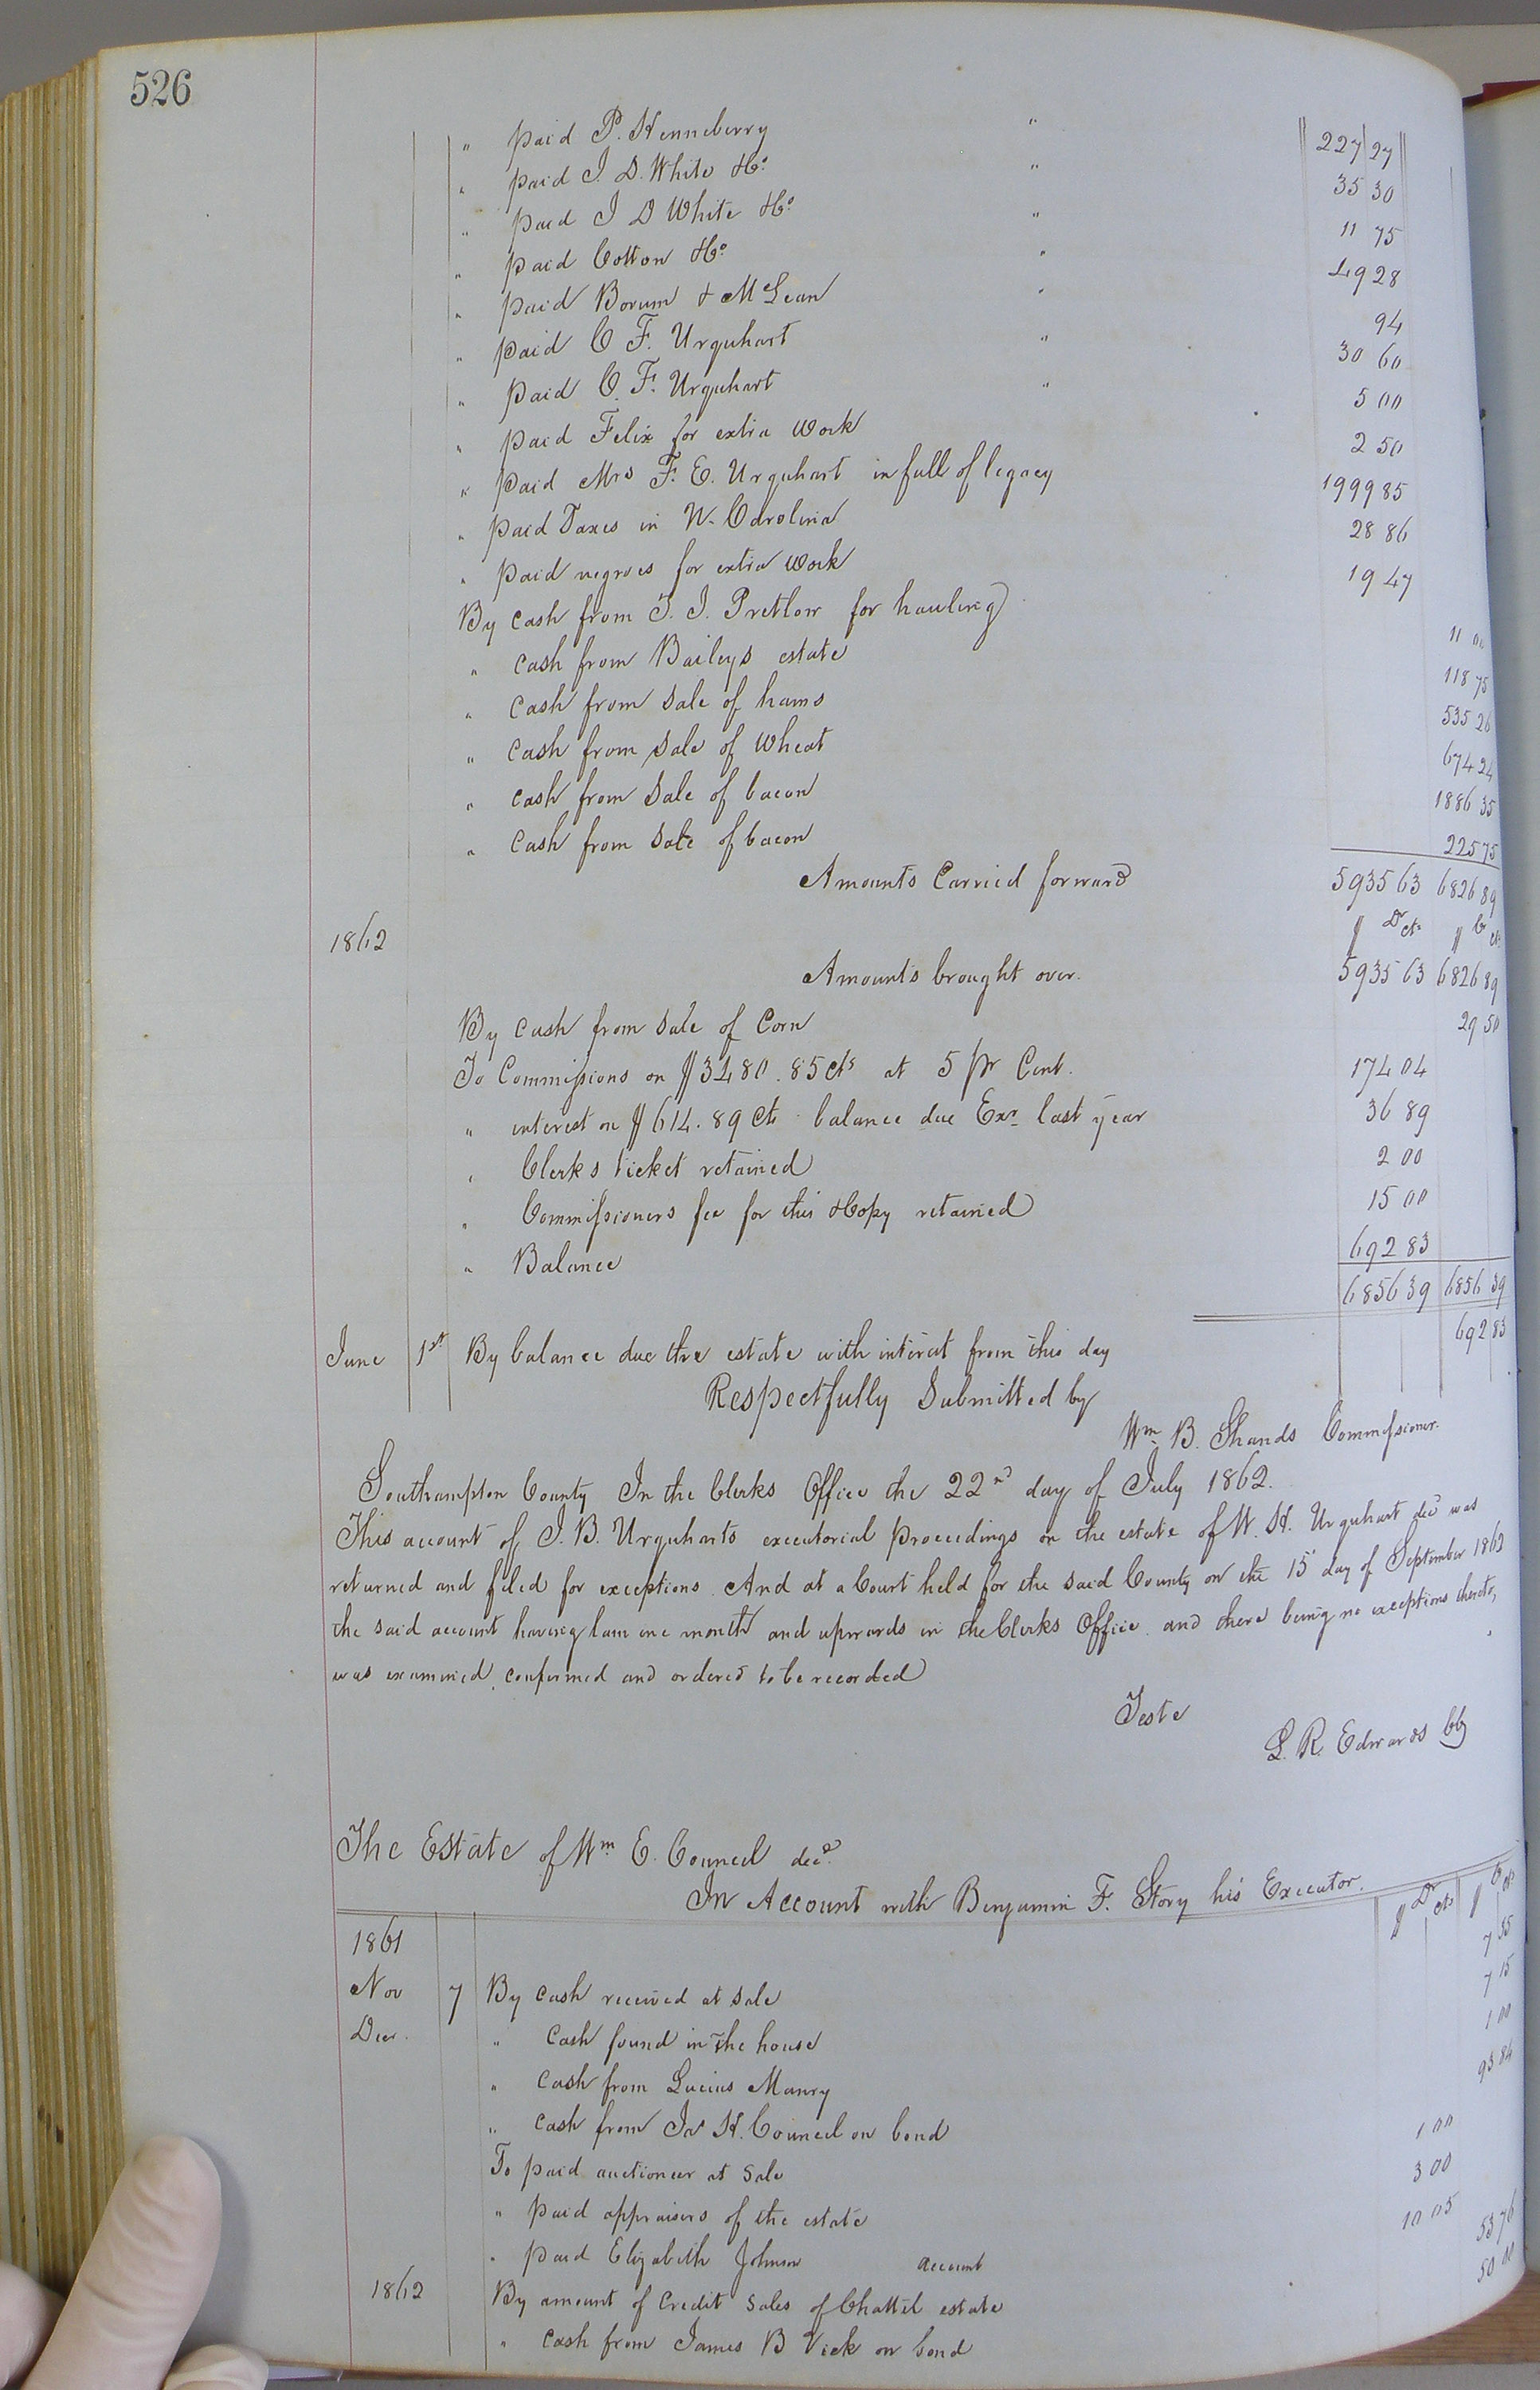 526
" paid P. Henneberry " 227 27
" paid J. D. White &Co. " 35 30
" paid J D White &Co. " 11 75
" paid Cotton &Co. " 49 28
" paid Borum & McLean " 94
" paid C F. Urquhart " 30 60
" paid C. F. Urquhart " 5 00
" paid Felix for extra work 2 50
" paid Mrs F. E. Urquhart in full of legacy 1999 85
" paid Taxes in N. Carolina 28 86
" paid negroes for extra work 19 47
By cash from J. J. Pretlow for hauling 11 00
" cash from Baileys estate 118 75
" cash from sale of hams 535 26
" cash from sale of wheat 674 24
" cash from sale of bacon 1886 35
" cash from sale of bacon 225 75
Amounts Carried forward 5935 63 6826 89
1862 $ Dr cts $ Cr cts
Amounts brought over. 5935 63 6826 89
By cash from sale of Corn 29 50
To Commissions on $3480.85 cts at 5 pr Cent. 174 04
" interest on $614.89 cts balance due Exr last year 36 89
" Clerks ticket retained 2 00
" Commissioners fee for this &Copy retained 15 00
" Balance 692 83
6856 39 6856 39
June 1st By balance due the estate with interest from this day 692 83
Respectfully Submitted by
Wm B. Shands Commissioner.
Southampton County In the Clerks Office the 22nd day of July 1862.
This account of J. B. Urquharts executorial proceedings on the estate of W. H. Urquhart decd was
returned and filed for exceptions. And at a Court held for the said County on the 15 day of September 1862
the said account having lain one month and upwards in the Clerks Office and there being no exceptions thereto,
was examined, confirmed and ordered to be recorded
Teste
L. R. Edwards CC
The Estate of Wm E. Council decd.
In Account with Benjamin F. Story his Executor.
1861 $ Dr cts $ Cr cts
Nov 7 By cash received at sale 7 35
Decr. " Cash found in the house 7 15
" Cash from Lucius Manry 1 00
" cash from Js H. Council on bond 93 84
To paid auctioneer at sale 1 00
" paid appraisers of the estate 3 00
" paid Elizabeth Johnson account 10 05
1862 By amount of Credit sales of Chattel estate 53 76
" cash from James B Vick on bond 50 00